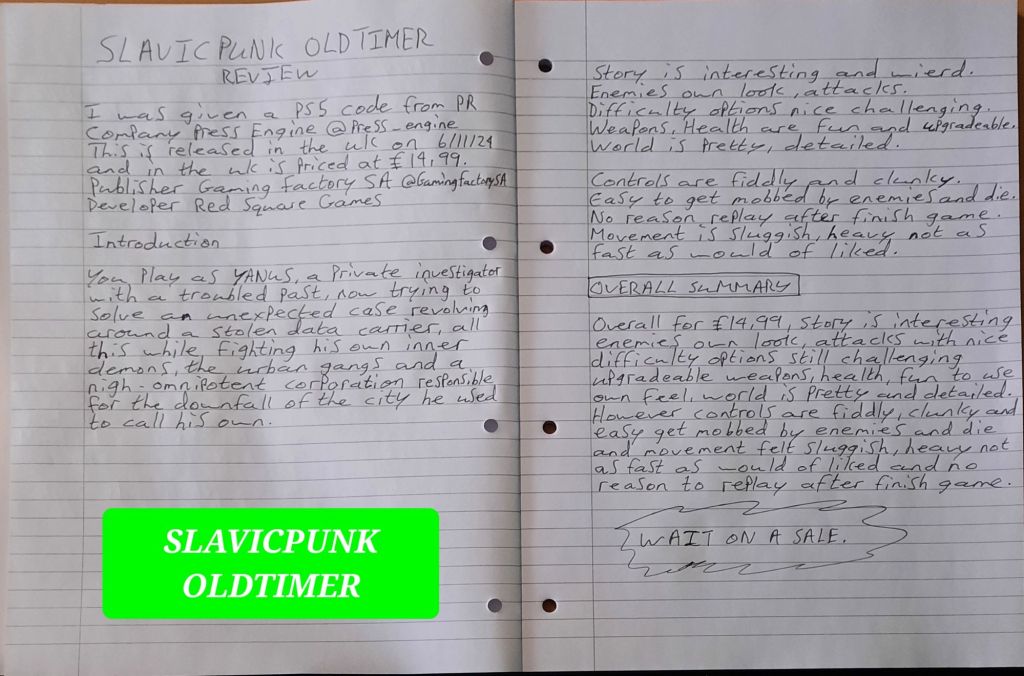 SLAVICPUNK OLDTIMER
REVIEW
I was given a PS5 code from PR
Company Press Engine @Press_engine
This is released in the uk on 6/11/24
and in the uk is Priced at £14,99.
Publisher Gaming Factory SA @GamingfactorySA
Developer Red Square Games
Introduction
You Play as YANUS, a Private investigator
with a troubled Past, now trying to
solve an unexpected case revolving
around a stolen data carrier, all
this while fighting his own inner
demons, the urban gangs and a
nigh-omnipotent corporation responsible
for the downfall of the city he used
to call his own.
SLAVICPUNK
OLDTIMER
Story is interesting and wierd.
Enemies own look, attacks.
Difficulty options nice challenging.
Weapons, Health are fun and upgradeable.
World is Pretty, detailed.
Controls are fiddly and clunky.
Easy to get mobbed by enemies and die.
No reason replay after finish game.
Movement is sluggish, heavy not as
fast as would of liked.
OVERALL SUMMARY
Overall for £14,99, story is interesting
enemies own look, attacks with nice
difficulty options still challenging
upgradeable weapons, health, fun to use
own feel, world is Pretty and detailed.
However controls are fiddly, clunky and
easy get mobbed by enemies and die
and movement felt sluggish, heavy not
as fast as would of liked and no
reason to replay after finish game.
WAIT ON A SALE.